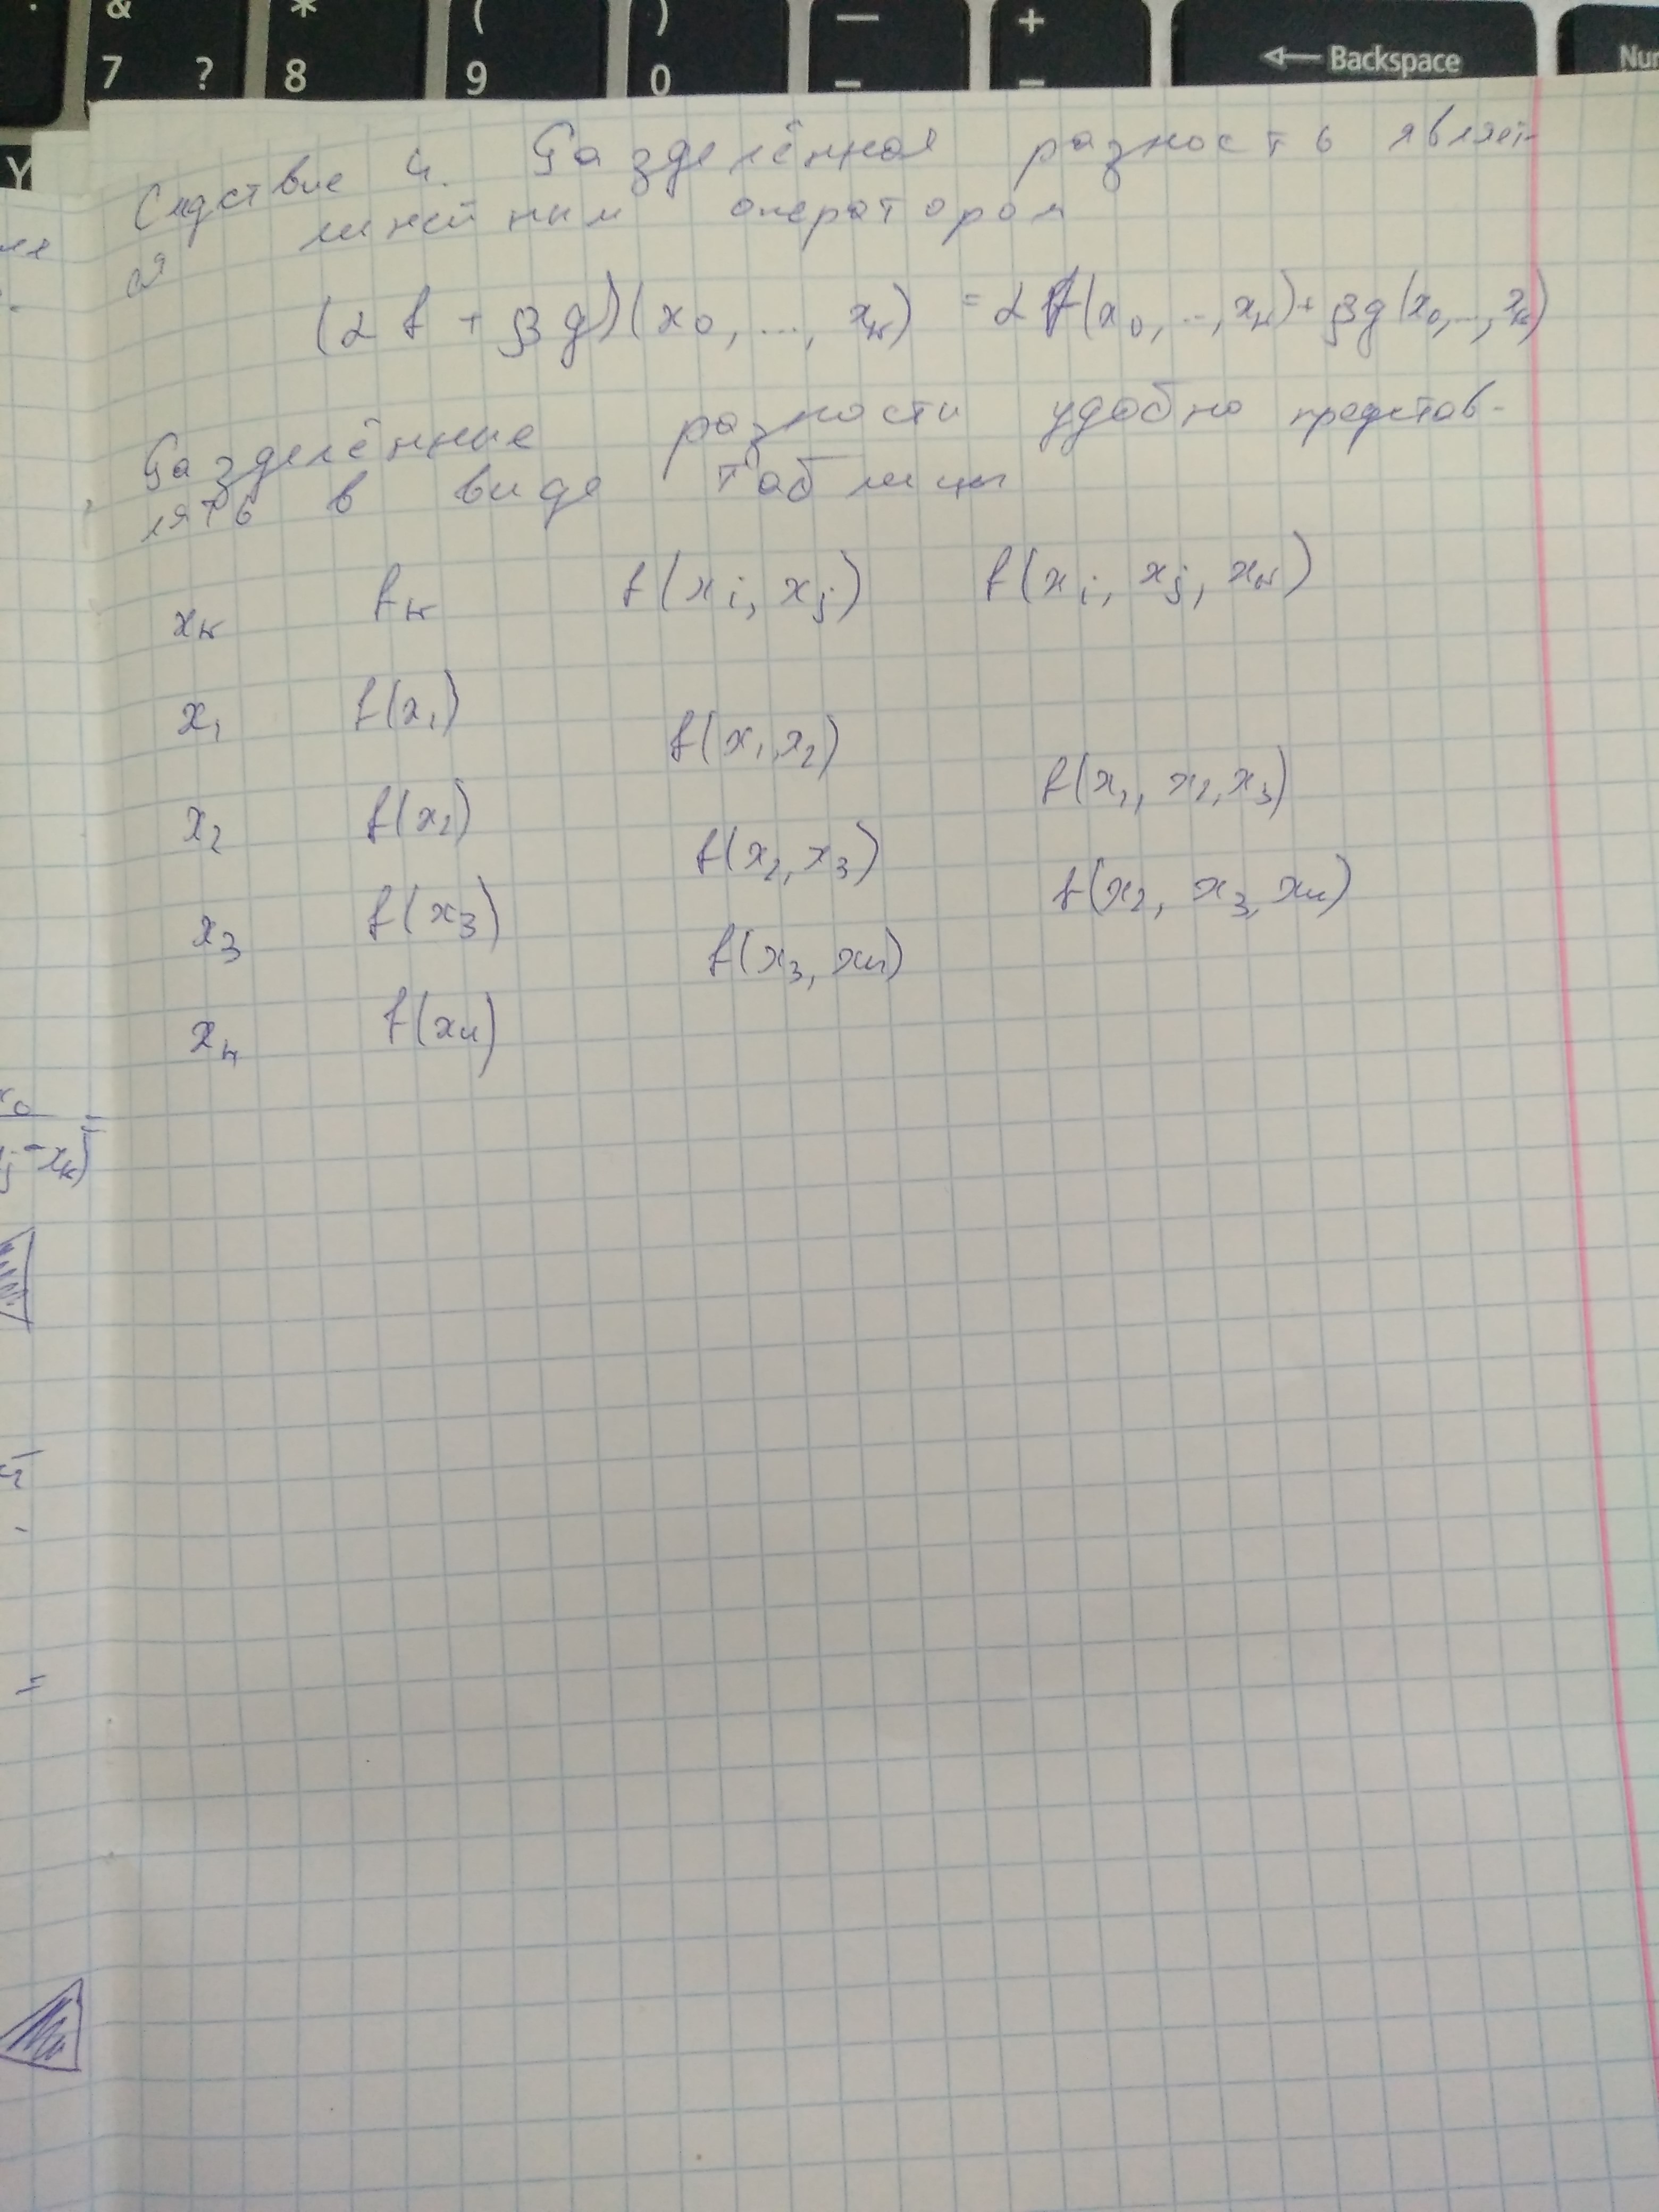 & * ( ) — +
7 ? 8 9 0 – = Backspace
Y
Следствие 4. Разделённая разность являет-
ся линейным оператором
(αf + βg)(x₀, ..., xₖ) = αf(x₀, ..., xₖ) + βg(x₀, ..., xₖ)
Разделённые разности удобно представ-
лять в виде таблицы
xₖ fₖ f(xᵢ, xⱼ) f(xᵢ, xⱼ, xₖ)
x₁ f(x₁)
f(x₁, x₂)
f(x₁, x₂, x₃)
x₂ f(x₂)
f(x₂, x₃)
f(x₂, x₃, x₄)
x₃ f(x₃)
f(x₃, x₄)
x₄ f(x₄)